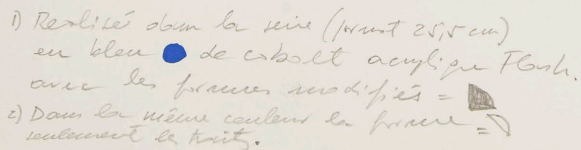 1) Realisé dans la serie (format 25,5 cm)
en bleu de cobolt acrylique Flash.
avec les formes modifiés =
2) Dans la même couleur la forme =
seulement le trait.